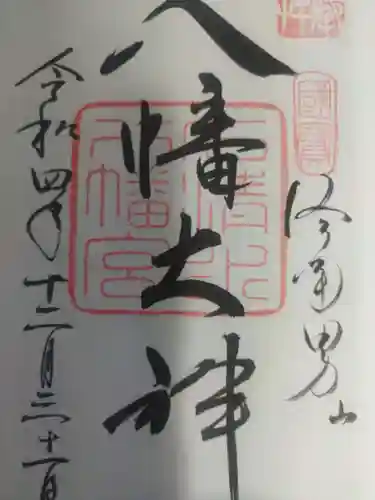 洛南男山
八幡大神
令和四年十二月三十一日
國寶
石清水
八幡宮